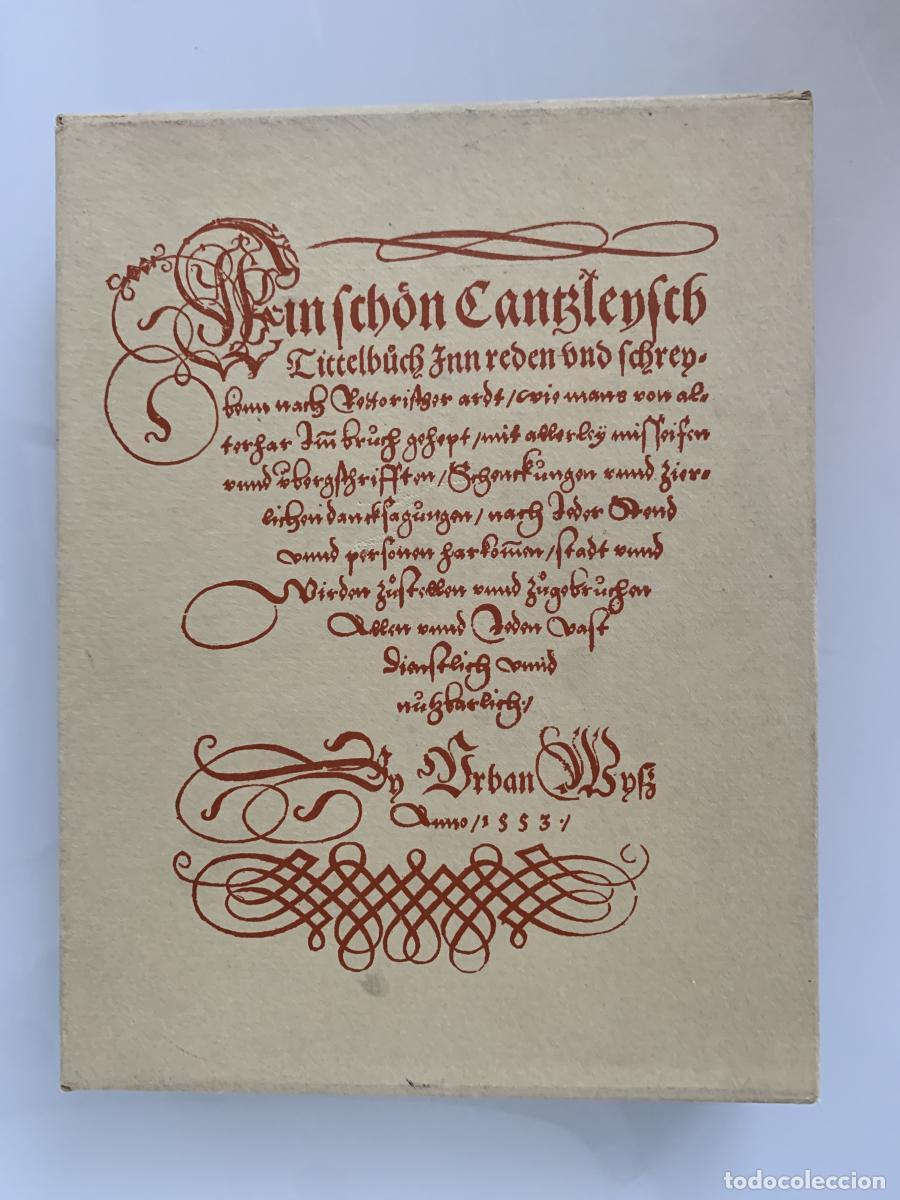 Ein schön Cantzleysch
Tittelbůch Inn reden vnd schrey-
benn nach Retorischer ardt/wie mans von al-
terhar Im̄ brůch gehept/mit allerley missifen
vnnd v̊bergschrifften/Schenckůngen vnnd zier-
lichen dancksagůngen/nach Jeder Stend
vnnd personen harkom̄en/stadt vnnd
Wirden zůstellen vnnd zůgebrůchen
Allen vnnd Jeden vast
dienstlich vnnd
nutzbarlich:/
By Vrban Wyß
Anno/1553:/
todocoleccion